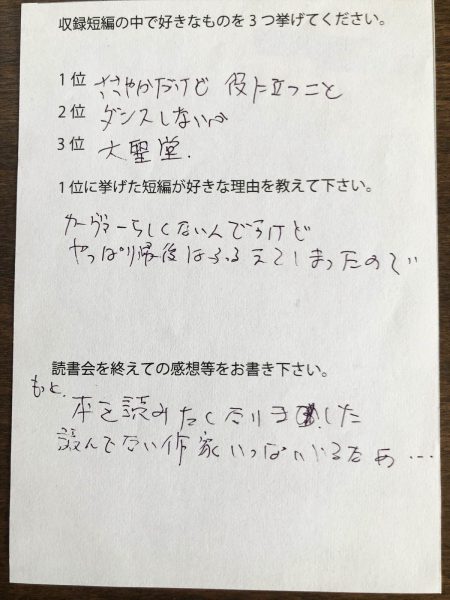 収録短編の中で好きなものを3つ挙げてください。
1位 ささやかだけど 役に立つこと
2位 ダンスしないか
3位 大聖堂.
1位に挙げた短編が好きな理由を教えて下さい。
カーヴァーらしくないんですけど
やっぱり 最後はふるえてしまったので
読書会を終えての感想等をお書き下さい。
もっと、
本を読みたくなりました
読んでない作家いっぱいいるなぁ…